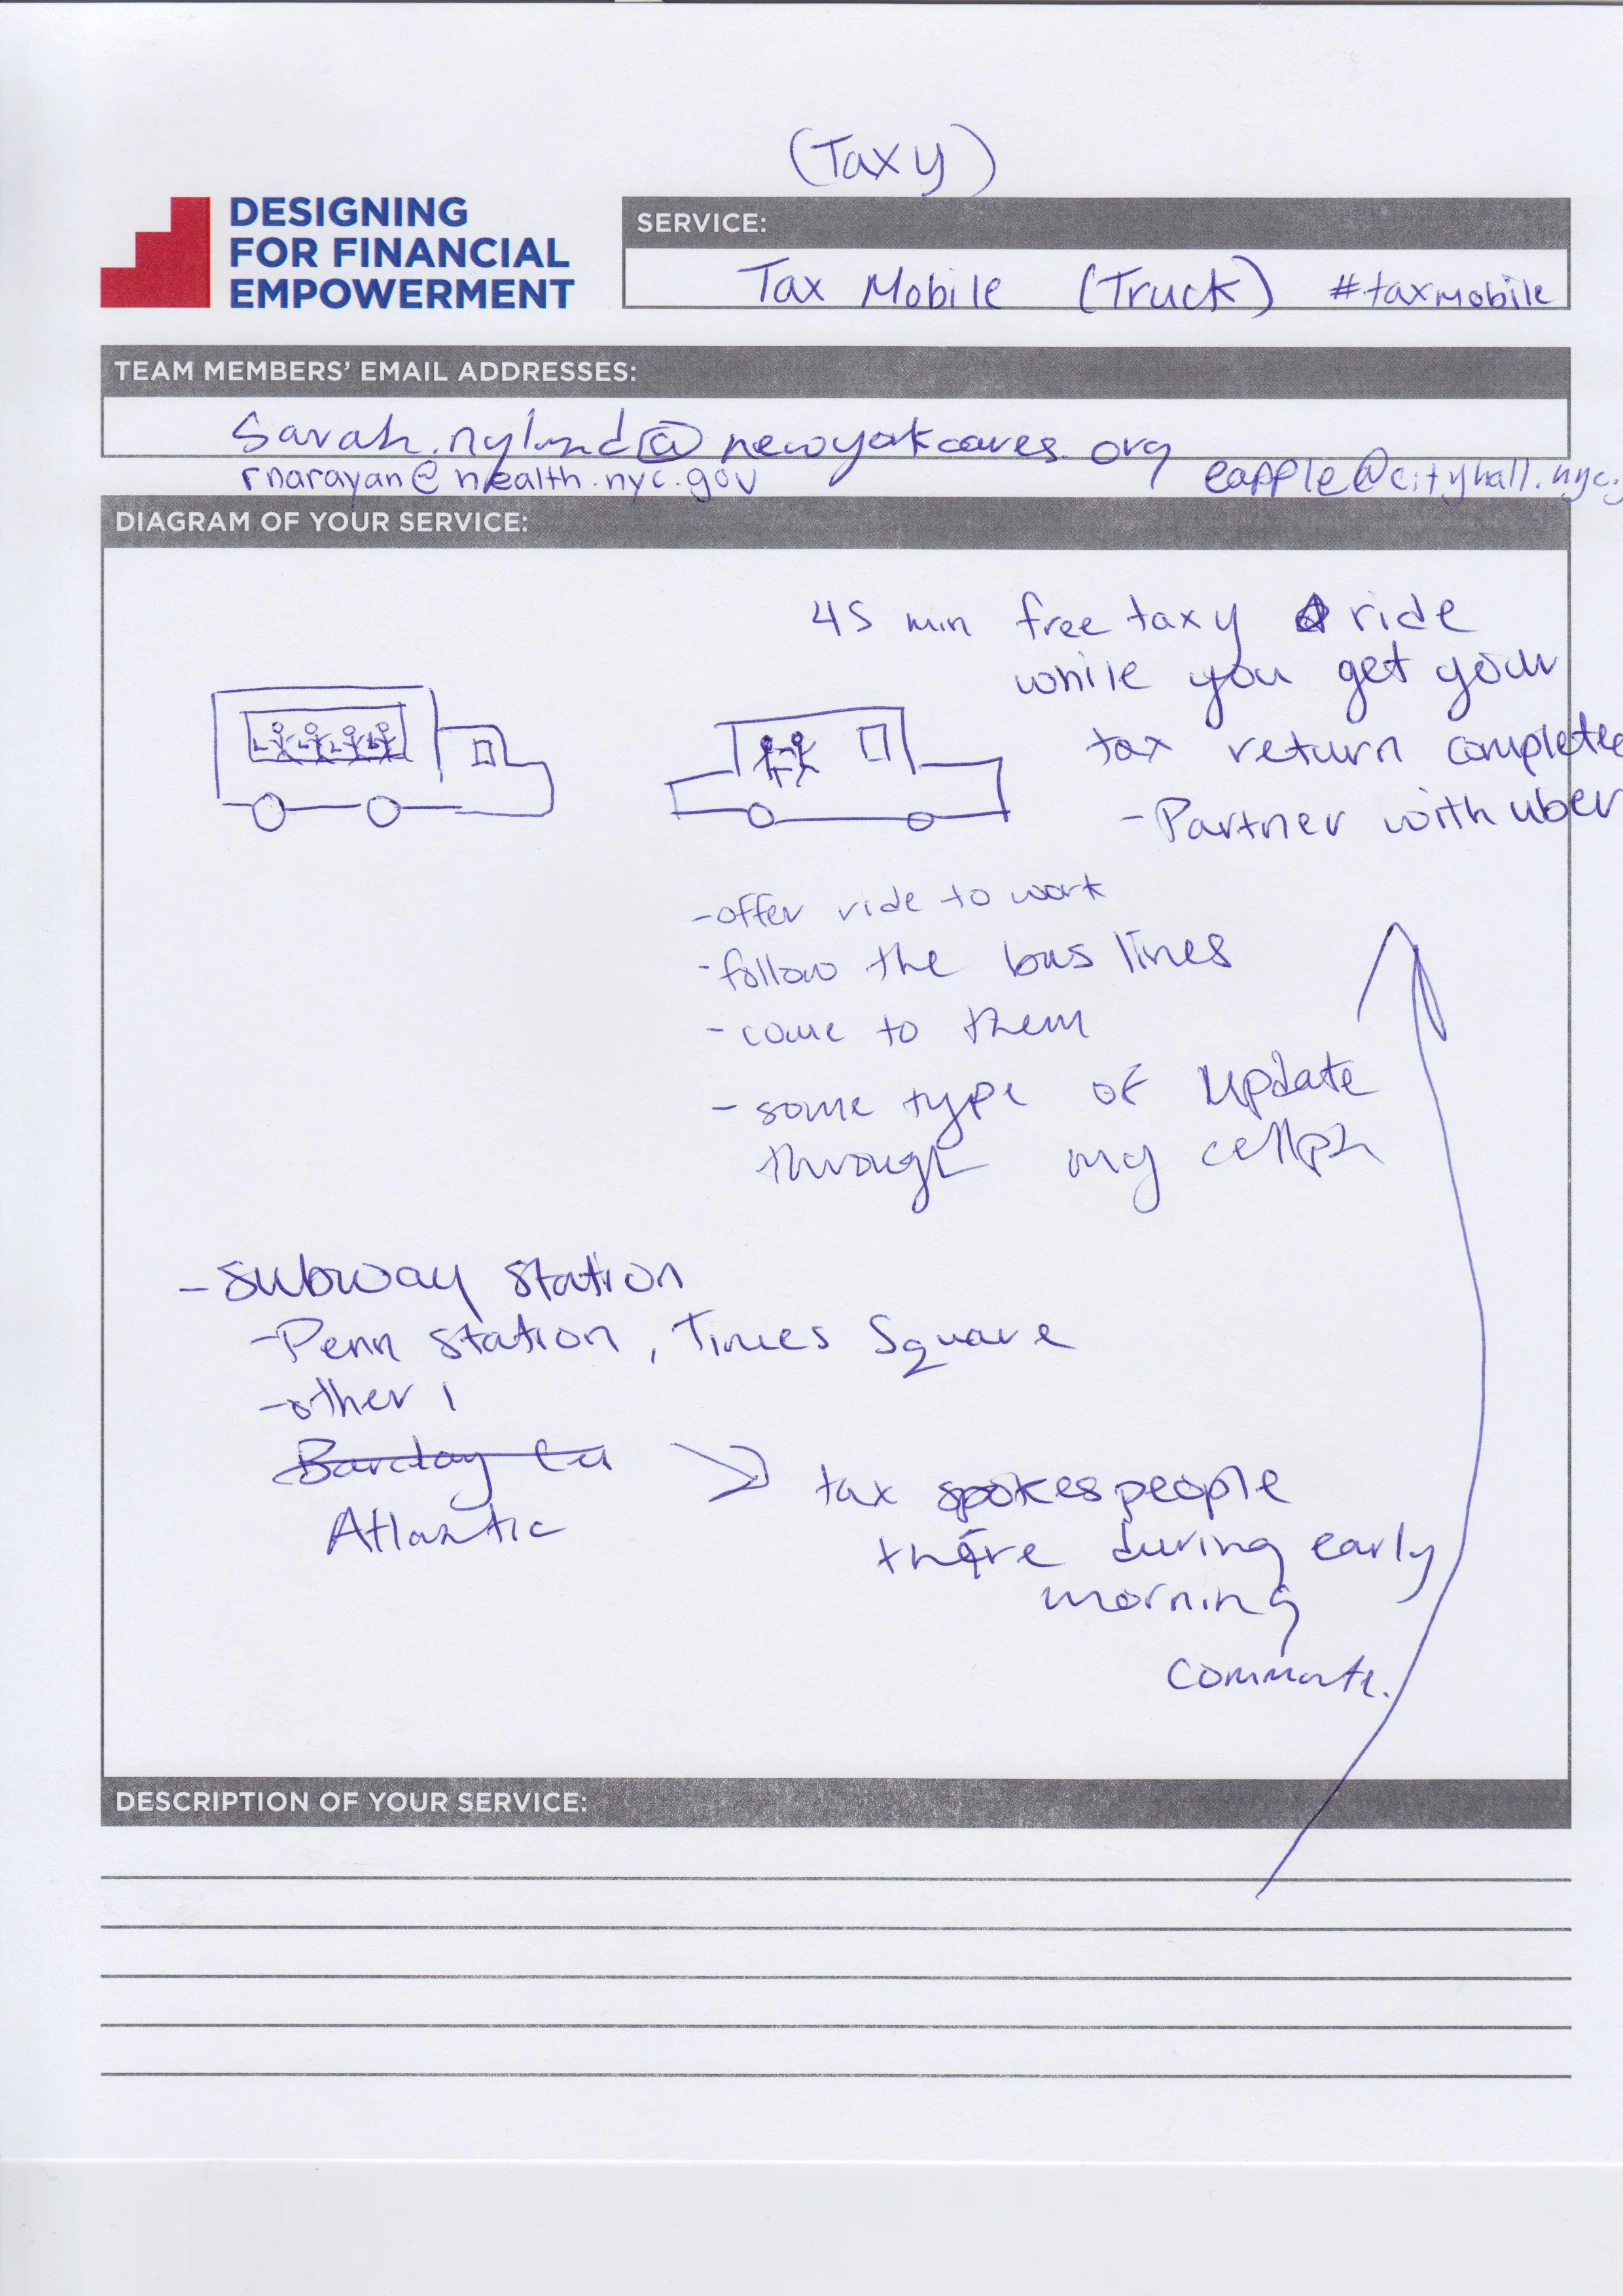 (Taxy)
DESIGNING
FOR FINANCIAL
EMPOWERMENT
SERVICE:
Tax Mobile (Truck) #taxmobile
TEAM MEMBERS' EMAIL ADDRESSES:
Sarah.nylund@newyorkcares.org
rnarayan@health.nyc.gov eapple@cityhall.nyc.
DIAGRAM OF YOUR SERVICE:
45 min free taxy ride
while you get your
tax return complete
- Partner with uber
- offer ride to work
- follow the bus lines
- come to them
- some type of update
through my cellph
- subway station
- Penn Station, Times Square
- other 1
Barclay
Atlantic
tax spokespeople
there during early
morning
commute.
DESCRIPTION OF YOUR SERVICE: